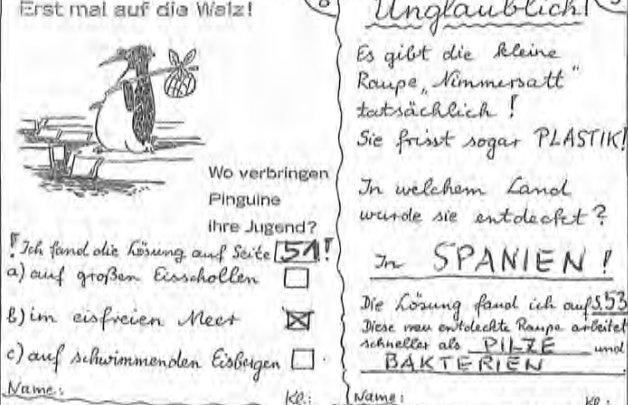 Erst mal auf die Walz!
Wo verbringen
Pinguine
ihre Jugend?
! Ich fand die Lösung auf Seite 51!
a) auf großen Eisschollen
b) im eisfreien Meer
c) auf schwimmenden Eisbergen
Name:
Kl.:
Unglaublich!
Es gibt die kleine
Raupe „Nimmersatt"
tatsächlich!
Sie frisst sogar PLASTIK!
In welchem Land
wurde sie entdeckt?
In SPANIEN!
Die Lösung fand ich auf S. 53
Diese neu entdeckte Raupe arbeitet
schneller als PILZE und
BAKTERIEN
Name:
Kl.: